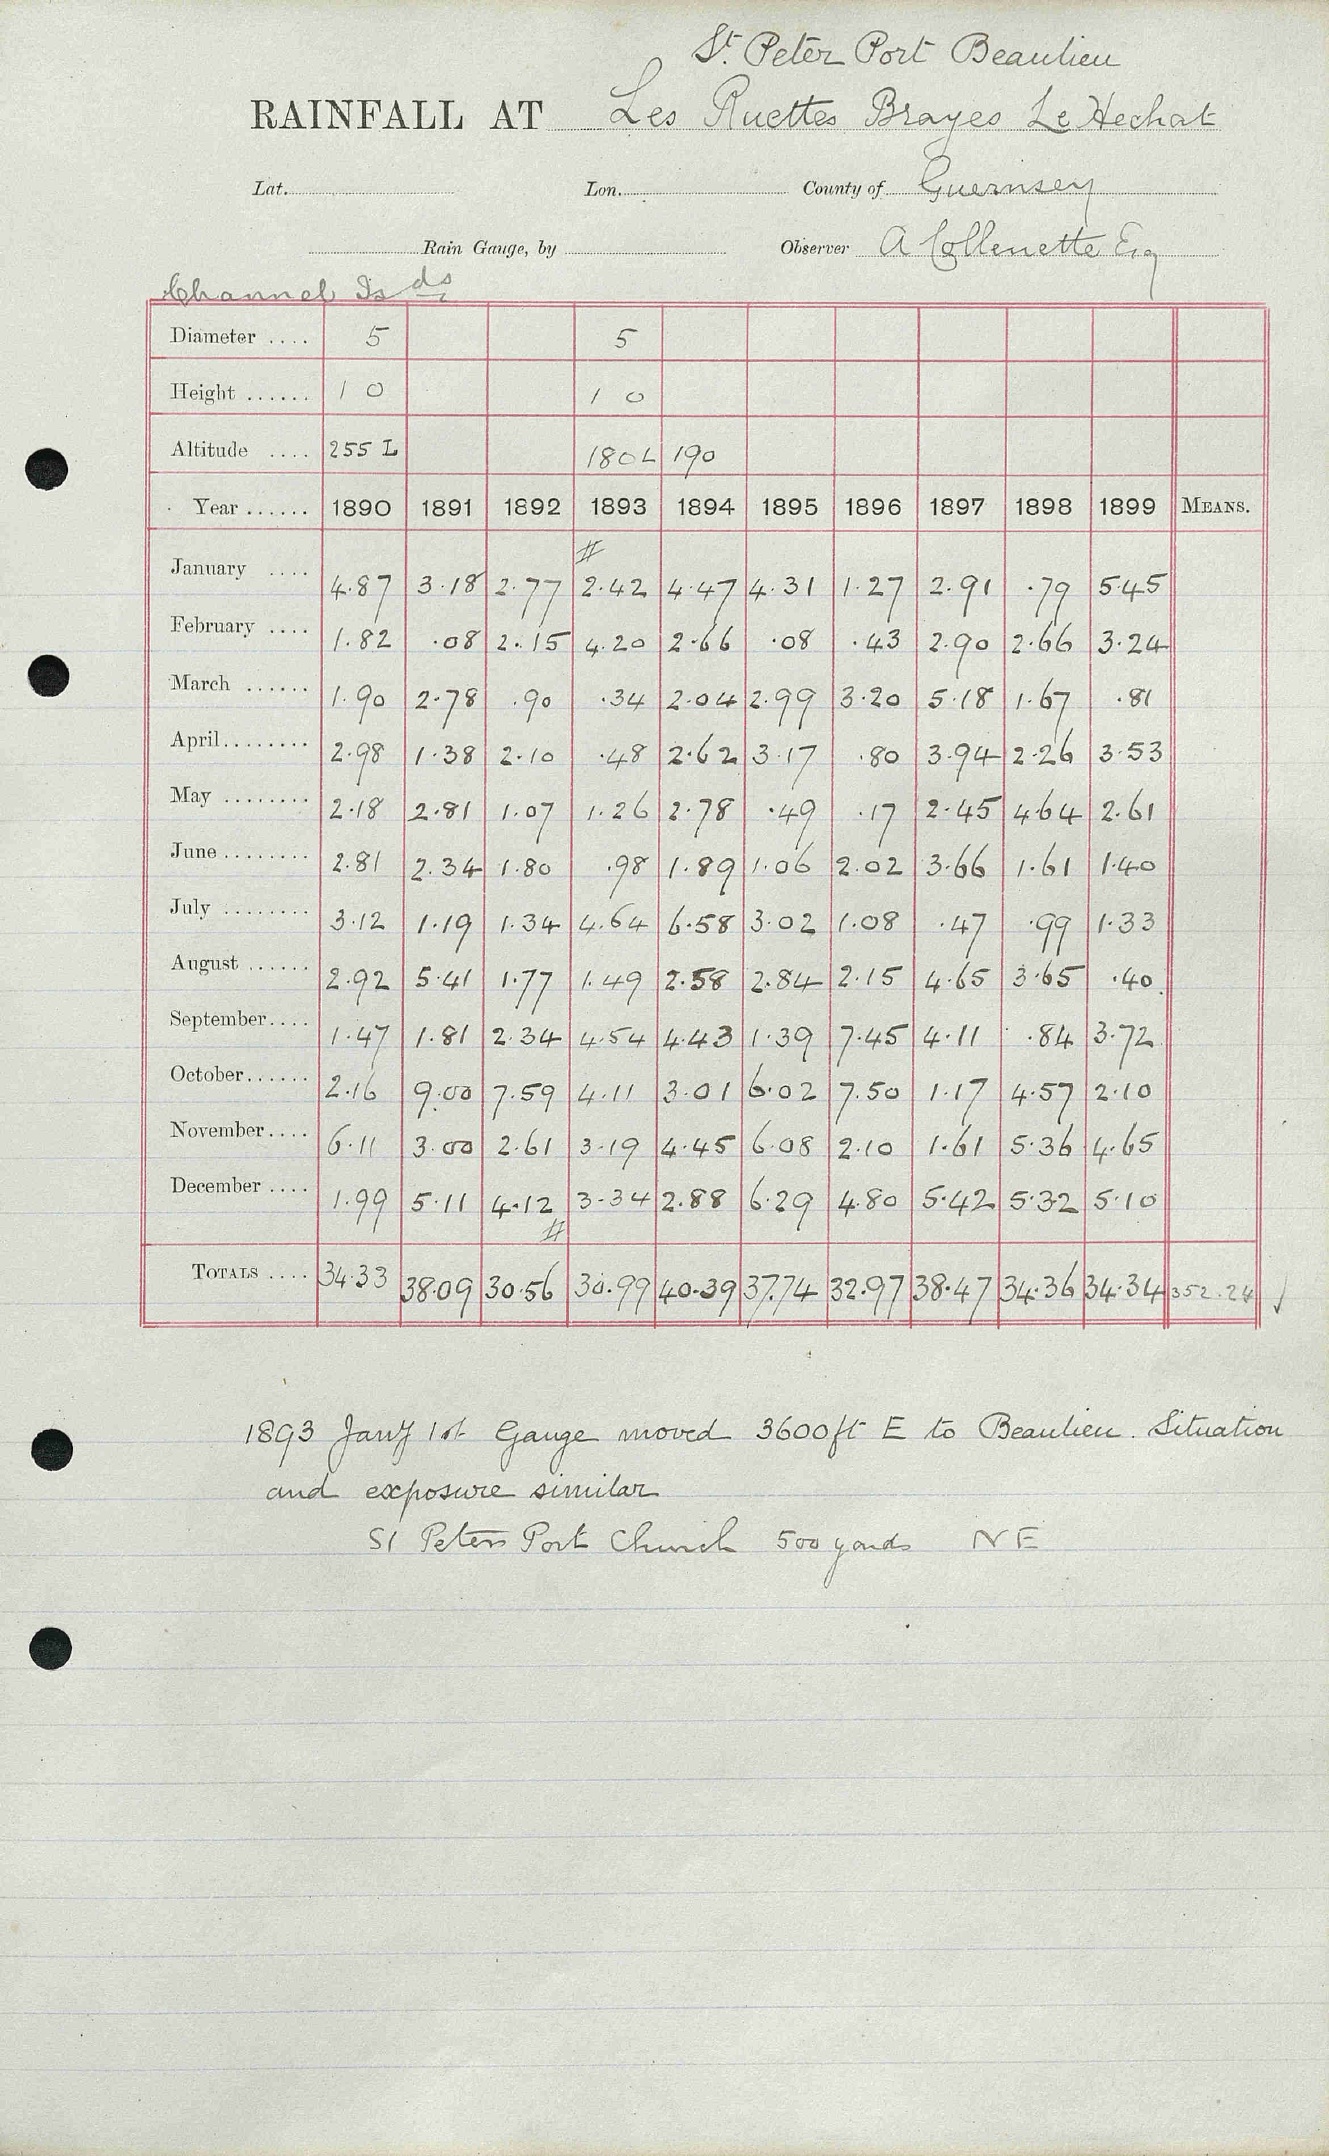 St. Peter Port Beaulieu
RAINFALL AT Les Ruettes Brayes Le Hechat
Lat. Lon. County of Guernsey
Rain Gauge, by Observer A Collenette Esq
Channel Isds
Diameter .... 5 5
Height ...... 1 0 1 0
Altitude .... 255 L 180 L 190
Year ...... 1890 1891 1892 1893 1894 1895 1896 1897 1898 1899 MEANS.
#
January .... 4.87 3.18 2.77 2.42 4.47 4.31 1.27 2.91 .79 5.45
February .... 1.82 .08 2.15 4.20 2.66 .08 .43 2.90 2.66 3.24
March ...... 1.90 2.78 .90 .34 2.04 2.99 3.20 5.18 1.67 .81
April........ 2.98 1.38 2.10 .48 2.62 3.17 .80 3.94 2.26 3.53
May ........ 2.18 2.81 1.07 1.26 2.78 .49 .17 2.45 4.64 2.61
June ........ 2.81 2.34 1.80 .98 1.89 1.06 2.02 3.66 1.61 1.40
July ........ 3.12 1.19 1.34 4.64 6.58 3.02 1.08 .47 .99 1.33
August ...... 2.92 5.41 1.77 1.49 2.58 2.84 2.15 4.65 3.65 .40
September.... 1.47 1.81 2.34 4.54 4.43 1.39 7.45 4.11 .84 3.72
October...... 2.16 9.00 7.59 4.11 3.01 6.02 7.50 1.17 4.57 2.10
November.... 6.11 3.00 2.61 3.19 4.45 6.08 2.10 1.61 5.36 4.65
December .... 1.99 5.11 4.12 3.34 2.88 6.29 4.80 5.42 5.32 5.10
#
TOTALS .... 34.33 38.09 30.56 30.99 40.39 37.74 32.97 38.47 34.36 34.34 352.24 ✓
1893 Jany 1st Gauge moved 3600ft E to Beaulieu. Situation
and exposure similar
St Peters Port Church 500 yards NE